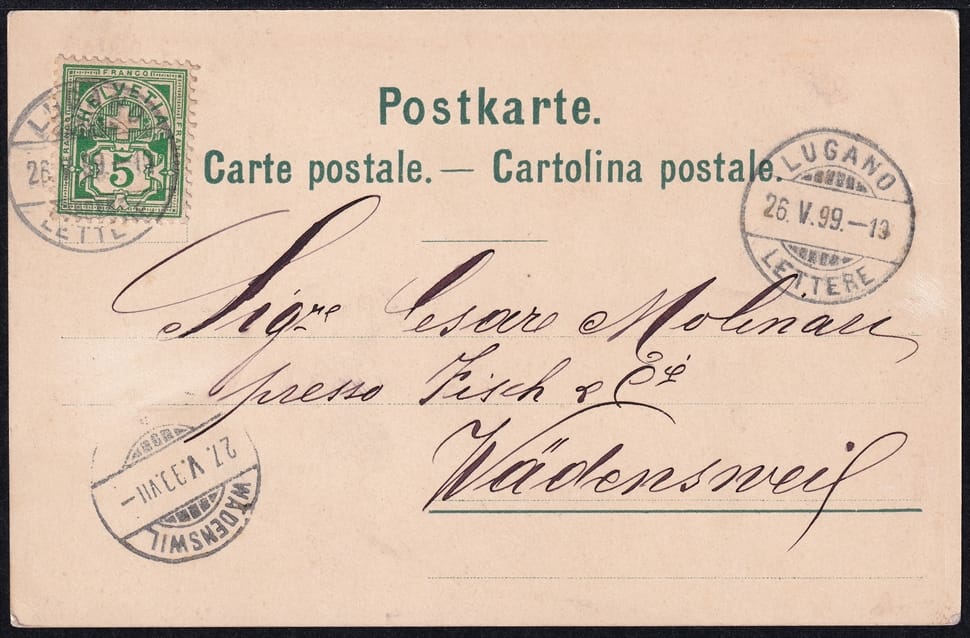 FRANCO
HELVETIA
5
LETTERE
Postkarte.
Carte postale. — Cartolina postale.
LUGANO
26. V. 99. — 19
LETTERE
Sigre Cesare Molinari
presso Fisch & Cie
Wädensweil
27. V. 99. VII —
WÄDENSWIL